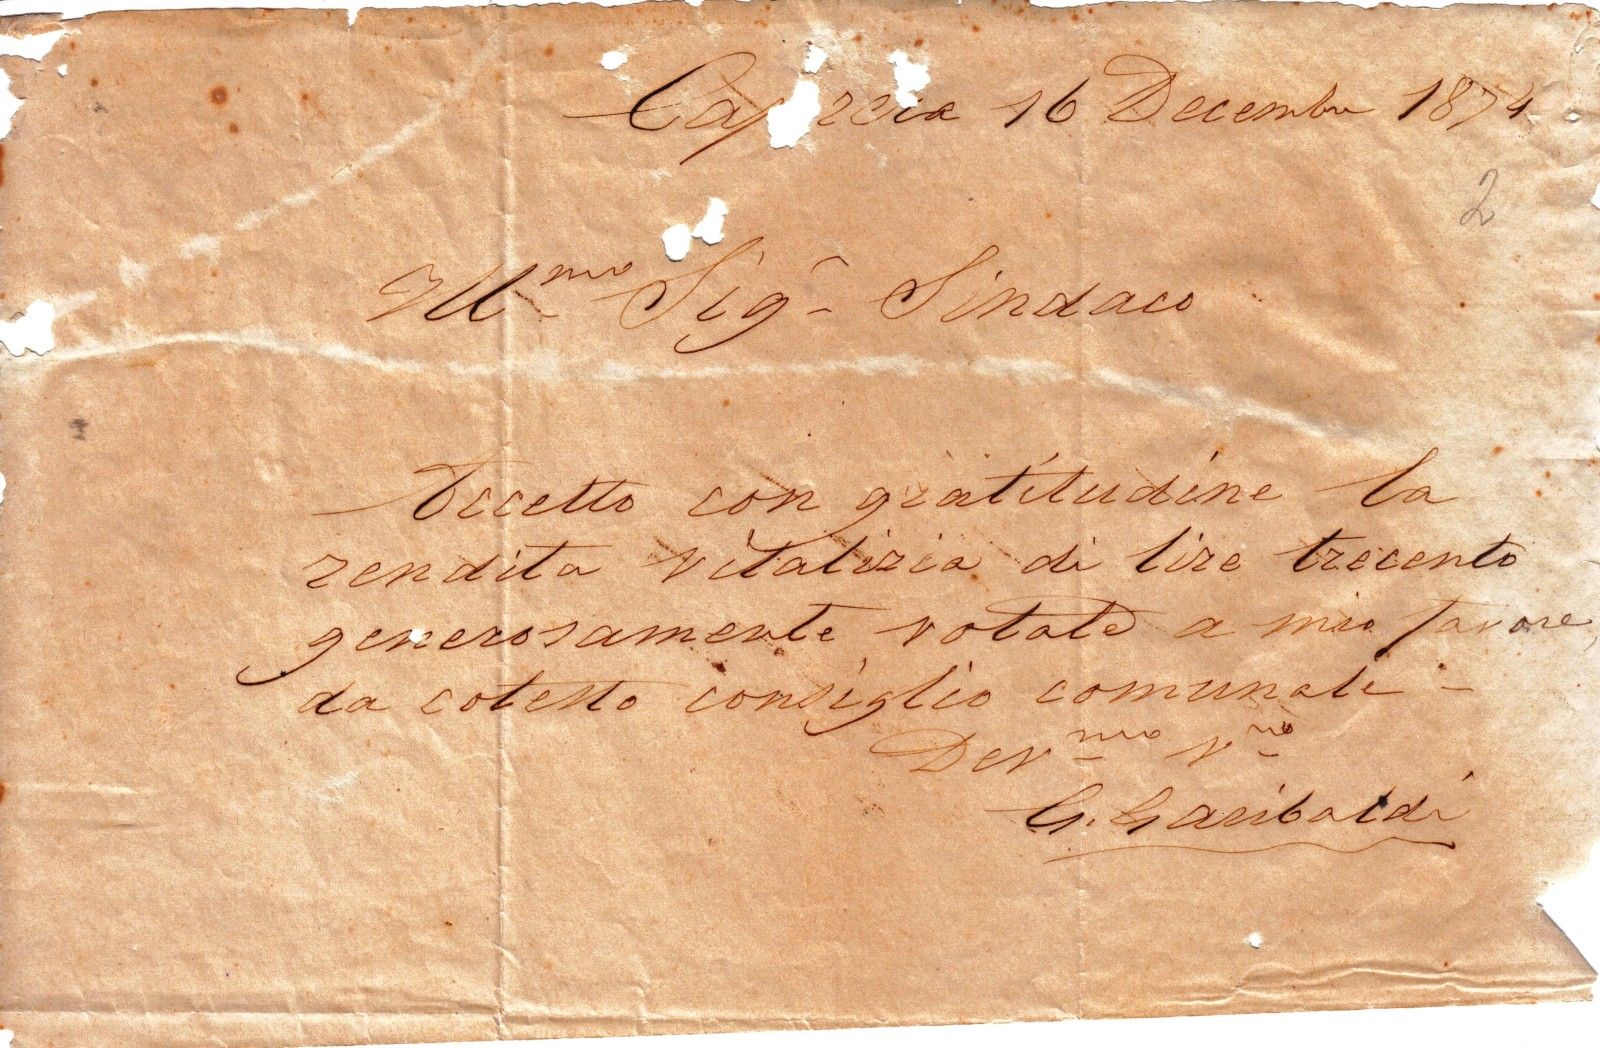 Caprera 16 Decembre 1874
2
Ill.mo Sig. Sindaco
Accetto con gratitudine la
rendita vitalizia di lire trecento
generosamente votate a mio favore,
da cotesto consiglio comunale -
Dev.mo V.ro
G. Garibaldi